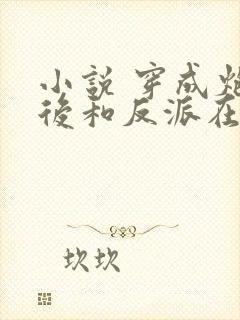 小說 穿成
後和反派在
坎坎